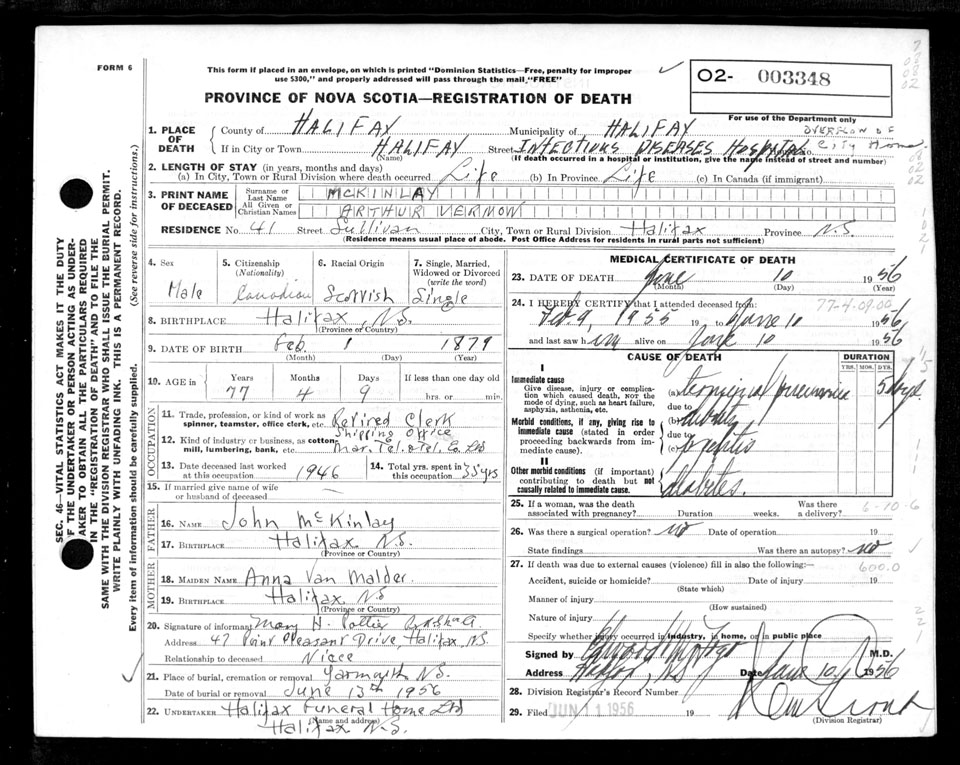 FORM 6
This form if placed in an envelope, on which is printed "Dominion Statistics—Free, penalty for improper
use $300," and properly addressed will pass through the mail, "FREE"
O2- 003348
PROVINCE OF NOVA SCOTIA—REGISTRATION OF DEATH
For use of the Department only
1. PLACE OF DEATH
County of HALIFAX Municipality of HALIFAX
OVERFLOW OF
If in City or Town HALIFAX Street INFECTIOUS DISEASES HOSPITAL City Home
(Name) (If death occurred in a hospital or institution, give the name instead of street and number)
2. LENGTH OF STAY (in years, months and days)
(a) In City, Town or Rural Division where death occurred Life (b) In Province Life (c) In Canada (if immigrant)
3. PRINT NAME OF DECEASED
Surname or Last Name MCKINLAY
All Given or Christian Names ARTHUR VERMOW
RESIDENCE No. 41 Street Sullivan City, Town or Rural Division Halifax Province N.S.
(Residence means usual place of abode. Post Office Address for residents in rural parts not sufficient)
4. Sex
Male
5. Citizenship
(Nationality)
Canadian
6. Racial Origin
Scottish
7. Single, Married,
Widowed or Divorced
(write the word)
Single
8. BIRTHPLACE Halifax, N.S.
(Province or Country)
9. DATE OF BIRTH Feb. 1 1879
(Month) (Day) (Year)
10. AGE in
Years Months Days If less than one day old
77 4 9 hrs. or min.
OCCUPATION
11. Trade, profession, or kind of work as
spinner, teamster, office clerk, etc. Retired Clerk
Shipping Office
12. Kind of industry or business, as cotton
mill, lumbering, bank, etc. Mar. Tel. & Tel. Co. Ltd
13. Date deceased last worked
at this occupation 1946
14. Total yrs. spent in
this occupation 35 yrs
15. If married give name of wife
or husband of deceased —
FATHER
16. NAME John McKinlay
17. BIRTHPLACE Halifax N.S.
(Province or Country)
MOTHER
18. MAIDEN NAME Anna Van Malder
19. BIRTHPLACE Halifax, N.S
(Province or Country)
20. Signature of informant Mary H. Pottier
Address 47 Point Pleasant Drive, Halifax, N.S.
Relationship to deceased Niece
21. Place of burial, cremation or removal Yarmouth N.S.
Date of burial or removal June 13th 1956
22. UNDERTAKER Halifax Funeral Home Ltd
(Name and address)
Halifax N.S.
MEDICAL CERTIFICATE OF DEATH
23. DATE OF DEATH June 10 1956
(Month) (Day) (Year)
24. I HEREBY CERTIFY that I attended deceased from:
77-4-09.00
Feb. 9, 1955 19 to June 10 1956
and last saw him alive on June 10 1956
CAUSE OF DEATH DURATION
YRS. MOS. DYS.
I
Immediate cause
Give disease, injury or complica-
tion which caused death, NOT the
mode of dying, such as heart failure,
asphyxia, asthenia, etc.
(a) terminal pneumonia 5 days
due to
Morbid conditions, if any, giving rise to
immediate cause (stated in order
proceeding backwards from im-
mediate cause).
(b)
due to
(c)
II
Other morbid conditions (if important)
contributing to death but not
causally related to immediate cause.
diabetes.
25. If a woman, was the death
associated with pregnancy? Duration weeks. Was there
a delivery?
6-10-6
26. Was there a surgical operation? no Date of operation 19
State findings Was there an autopsy? no
27. If death was due to external causes (violence) fill in also the following:—
600.0
Accident, suicide or homicide? Date of injury 19
(State which)
Manner of injury
(How sustained)
Nature of injury
Specify whether injury occurred in industry, in home, or in public place
Signed by M.D.
Address Halifax, N.S. Date June 10, 1956
28. Division Registrar's Record Number
29. Filed JUN 11 1956 19
(Division Registrar)
SEC. 46—VITAL STATISTICS ACT MAKES IT THE DUTY
OF THE UNDERTAKER OR PERSON ACTING AS UNDER-
TAKER TO OBTAIN ALL THE PARTICULARS REQUIRED
IN THE "REGISTRATION OF DEATH" AND TO FILE THE
SAME WITH THE DIVISION REGISTRAR WHO SHALL ISSUE THE BURIAL PERMIT.
WRITE PLAINLY WITH UNFADING INK. THIS IS A PERMANENT RECORD.
Every item of information should be carefully supplied. (See reverse side for instructions.)